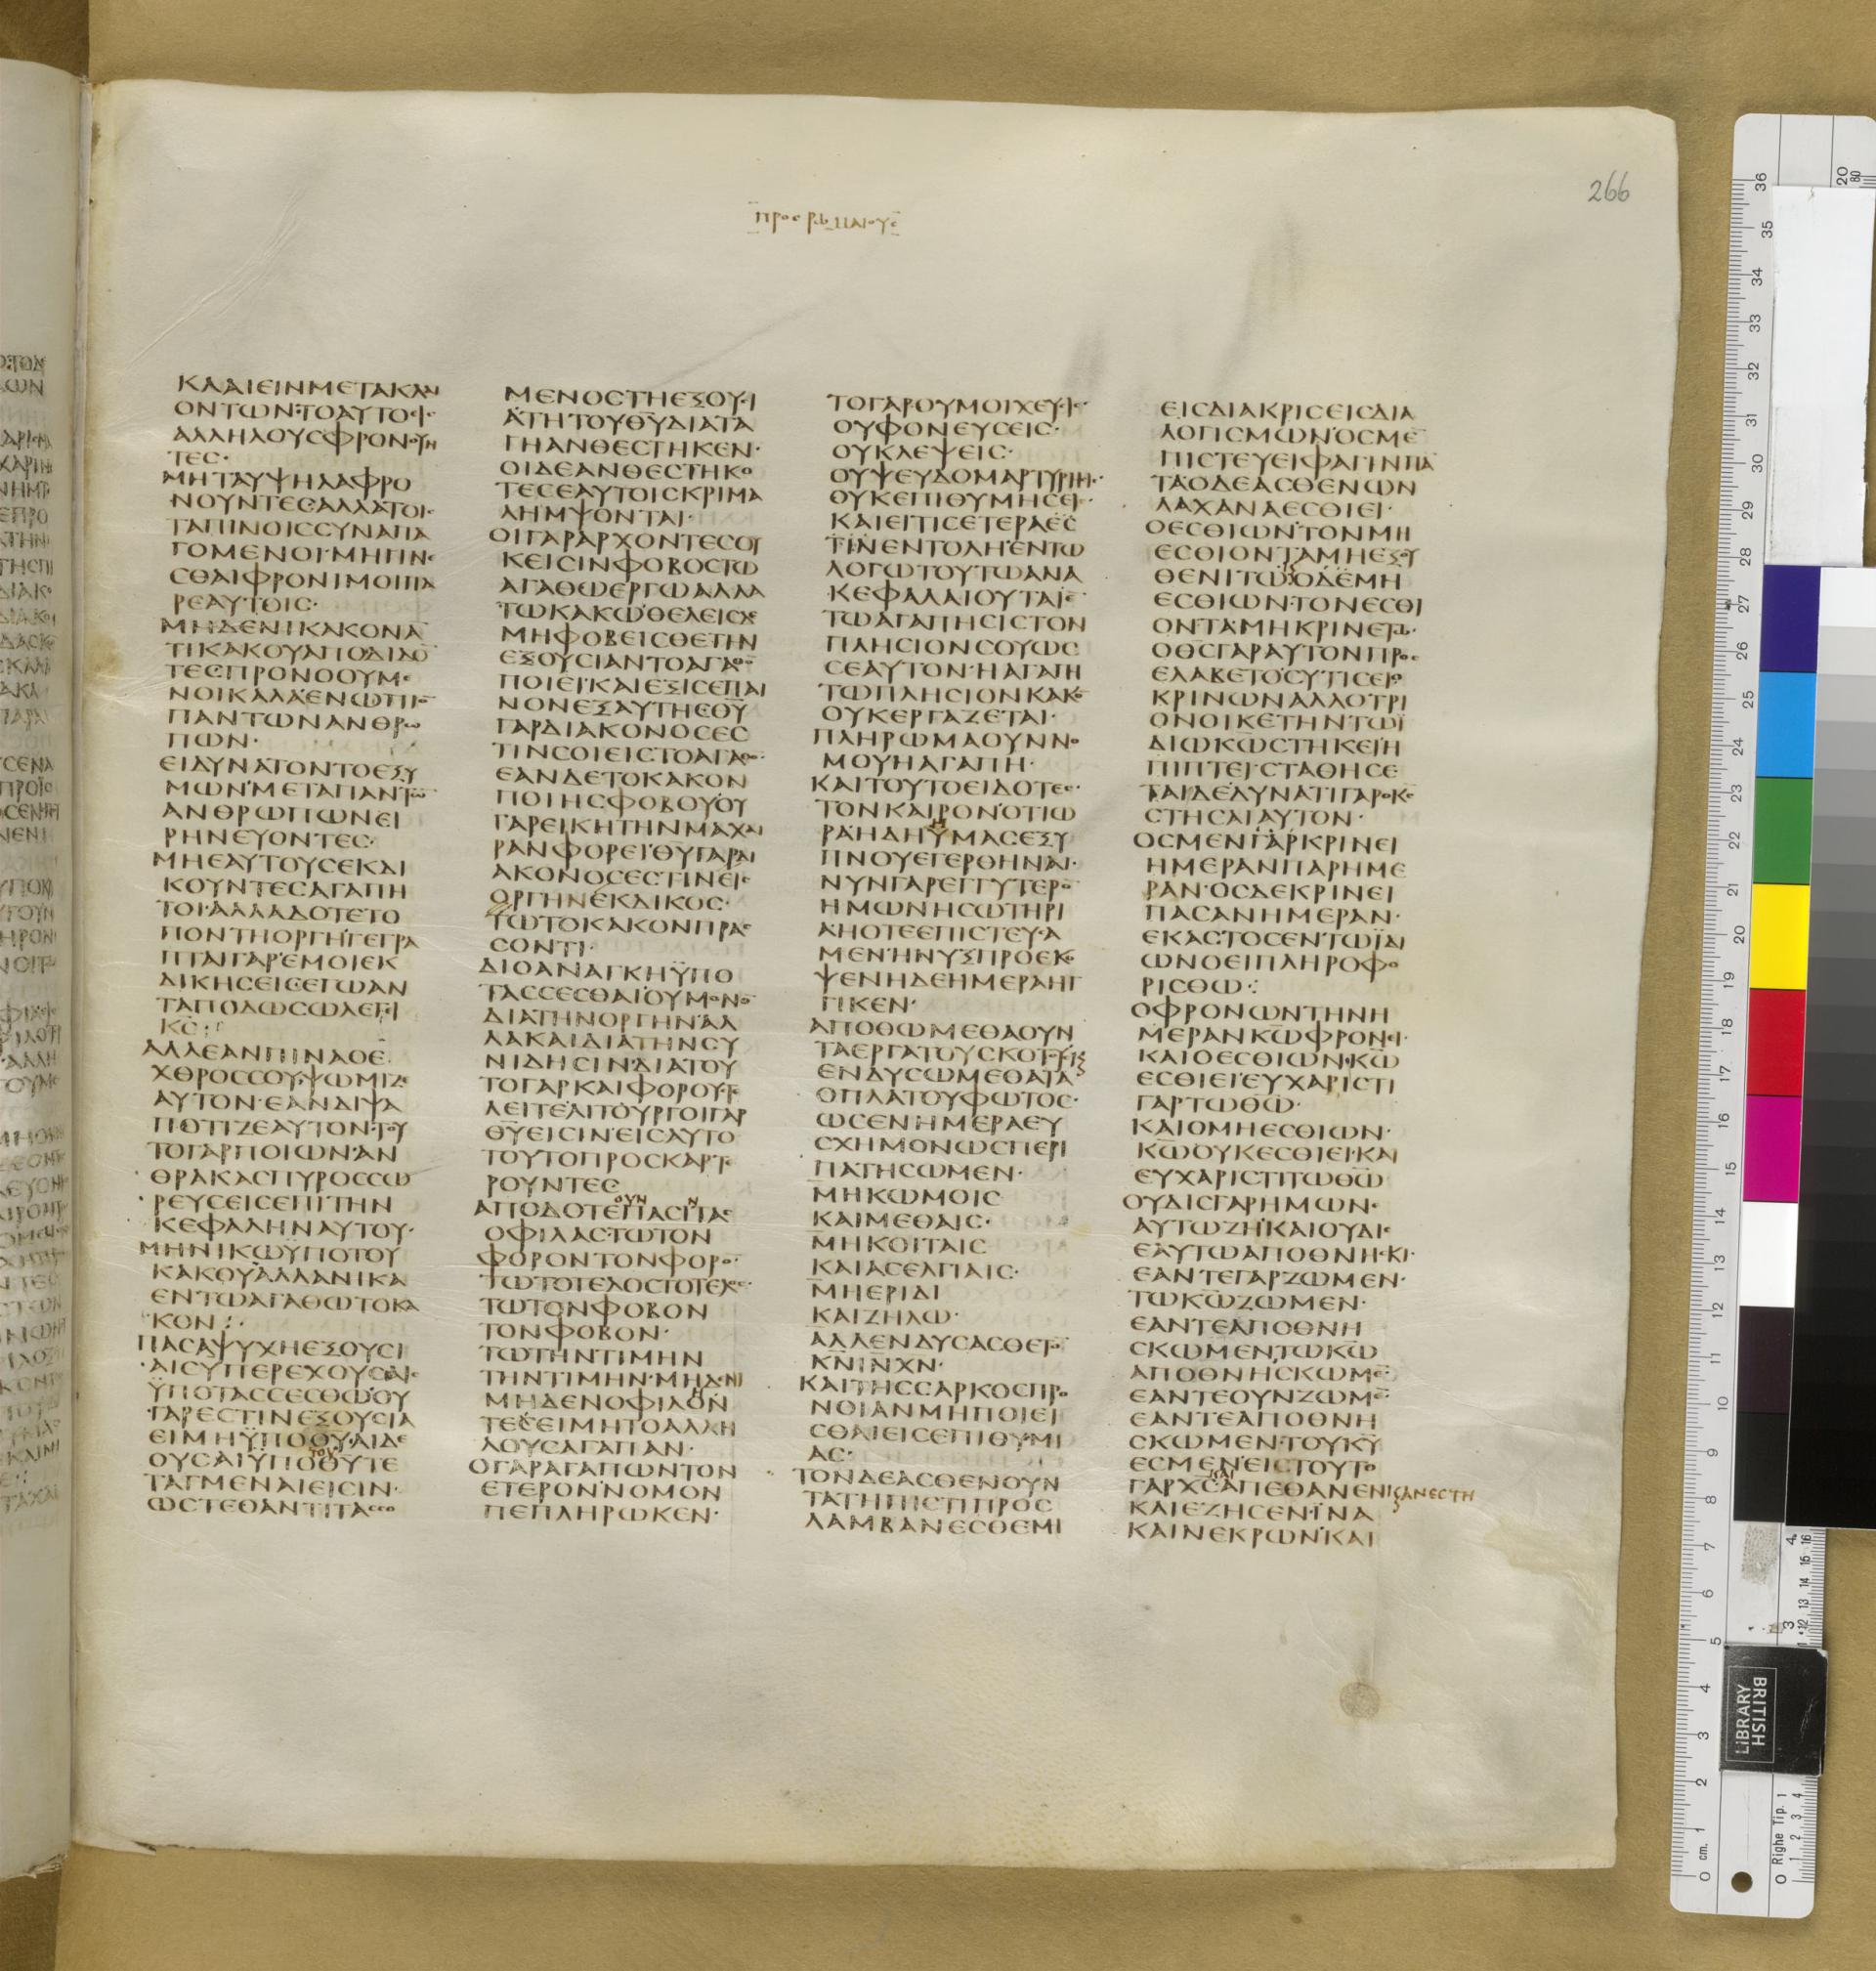 266
ΠΡΟΣ ΡΩΜΑΙΟΥΣ
ΚΛΑΙΕΙΝΜΕΤΑΚΛΑΙ
ΟΝΤΩΝ·ΤΟΑΥΤΟΕΙΣ
ΑΛΛΗΛΟΥΣΦΡΟΝΟΥΝ
ΤΕΣ·
ΜΗΤΑΥΨΗΛΑΦΡΟ
ΝΟΥΝΤΕΣΑΛΛΑΤΟΙΣ
ΤΑΠΙΝΟΙΣΣΥΝΑΠΑ
ΓΟΜΕΝΟΙ·ΜΗΓΙΝΕ
ΣΘΑΙΦΡΟΝΙΜΟΙΠΑ
ΡΕΑΥΤΟΙΣ·
ΜΗΔΕΝΙΚΑΚΟΝᾹ
ΤΙΚΑΚΟΥΑΠΟΔΙΔΟ̄
ΤΕΣΠΡΟΝΟΟΥΜΕ
ΝΟΙΚΑΛΑΕΝΩΠΙΟ̄
ΠΑΝΤΩΝΑΝΘΡΩ
ΠΩΝ·
ΕΙΔΥΝΑΤΟΝΤΟΕΞΥ
ΜΩΝΜΕΤΑΠΑΝΤΩ̄
ΑΝΘΡΩΠΩΝΕΙ
ΡΗΝΕΥΟΝΤΕΣ·
ΜΗΕΑΥΤΟΥΣΕΚΔΙ
ΚΟΥΝΤΕΣΑΓΑΠΗ
ΤΟΙ·ΑΛΛΑΔΟΤΕΤΟ
ΠΟΝΤΗΟΡΓΗΓΕΓΡΑ
ΠΤΑΙΓΑΡΕΜΟΙΕΚ
ΔΙΚΗΣΕΙΣΕΓΩΑΝ
ΤΑΠΟΔΩΣΩΛΕΓΕΙ
ΚΣ̄:
ΑΛΛΕΑΝΠΙΝΑΟΕ
ΧΘΡΟΣΣΟΥ·ΨΩΜΙΖΕ
ΑΥΤΟΝ·ΕΑΝΔΙΨΑ
ΠΟΤΙΖΕΑΥΤΟΝ·ΤΟΥ
ΤΟΓΑΡΠΟΙΩΝ·ΑΝ
ΘΡΑΚΑΣΠΥΡΟΣΣΩ
ΡΕΥΣΕΙΣΕΠΙΤΗΝ
ΚΕΦΑΛΗΝΑΥΤΟΥ·
ΜΗΝΙΚΩΫΠΟΤΟΥ
ΚΑΚΟΥΑΛΛΑΝΙΚΑ
ΕΝΤΩΑΓΑΘΩΤΟΚΑ
ΚΟΝ:·
ΠΑΣΑΨΥΧΗΕΞΟΥΣΙ
ΑΙΣΥΠΕΡΕΧΟΥΣΑΙΣ
ΫΠΟΤΑΣΣΕΣΘΩΟΥ
ΓΑΡΕΣΤΙΝΕΞΟΥΣΙΑ
ΕΙΜΗΫΠΟΘ̄Υ·ΑΙΔΕ
ΟΥΣΑΙΫΠΟΤΟΥΘΥΤΕ
ΤΑΓΜΕΝΑΙΕΙΣΙΝ·
ΩΣΤΕΟΑΝΤΙΤΑΣΣΟ
ΜΕΝΟΣΤΗΕΞΟΥΣΙ
ΑΤΗΤΟΥΘ̄ΥΔΙΑΤΑ
ΓΗΑΝΘΕΣΤΗΚΕΝ·
ΟΙΔΕΑΝΘΕΣΤΗΚΟ
ΤΕΣΕΑΥΤΟΙΣΚΡΙΜΑ
ΛΗΜΨΟΝΤΑΙ·
ΟΙΓΑΡΑΡΧΟΝΤΕΣΟΥ
ΚΕΙΣΙΝΦΟΒΟΣΤΩ
ΑΓΑΘΩΕΡΓΩΑΛΛΑ
ΤΩΚΑΚΩΘΕΛΕΙΣΔΕ
ΜΗΦΟΒΕΙΣΘΕΤΗΝ
ΕΞΟΥΣΙΑΝΤΟΑΓΑΘΟ̄
ΠΟΙΕΙ·ΚΑΙΕΞΙΣΕΠΑΙ
ΝΟΝΕΞΑΥΤΗΣΘ̄Υ
ΓΑΡΔΙΑΚΟΝΟΣΕΣ
ΤΙΝΣΟΙΕΙΣΤΟΑΓΑΘΟ̄·
ΕΑΝΔΕΤΟΚΑΚΟΝ
ΠΟΙΗΣΦΟΒΟΥΟΥ
ΓΑΡΕΙΚΗΤΗΝΜΑΧΑΙ
ΡΑΝΦΟΡΕΙΘ̄ΥΓΑΡΔΙ
ΑΚΟΝΟΣΕΣΤΙΝΕΙΣ
ΟΡΓΗΝΕΚΔΙΚΟΣ·
ΤΩΤΟΚΑΚΟΝΠΡΑΣ
ΣΟΝΤΙ·
ΔΙΟΑΝΑΓΚΗΫΠΟ
ΤΑΣΣΕΣΘΑΙΟΥΜΟΝΟ̄
ΔΙΑΤΗΝΟΡΓΗΝΑΛ
ΛΑΚΑΙΔΙΑΤΗΝΣΥ
ΝΙΔΗΣΙΝΔΙΑΤΟΥ
ΤΟΓΑΡΚΑΙΦΟΡΟΥΣΤΕ
ΛΕΙΤΕΛΙΤΟΥΡΓΟΙΓΑΡ
Θ̄ΥΕΙΣΙΝΕΙΣΑΥΤΟ
ΤΟΥΤΟΠΡΟΣΚΑΡΤΕ
ΡΟΥΝΤΕΣ
ΑΠΟΔΟΤΕΟΥΝΠΑΣΙΝΤΑΣ
ΟΦΙΛΑΣ·ΤΩΤΟΝ
ΦΟΡΟΝΤΟΝΦΟΡΟ̄·
ΤΩΤΟΤΕΛΟΣΤΟΤΕΛΟΣ·
ΤΩΤΟΝΦΟΒΟΝ
ΤΟΝΦΟΒΟΝ·
ΤΩΤΗΝΤΙΜΗΝ
ΤΗΝΤΙΜΗΝ·ΜΗΔΕΝΙ
ΜΗΔΕΝΟΦΙΛΟΝ
ΤΕΣΕΙΜΗΤΟΑΛΛΗ
ΛΟΥΣΑΓΑΠΑΝ·
ΟΓΑΡΑΓΑΠΩΝΤΟΝ
ΕΤΕΡΟΝΝΟΜΟΝ
ΠΕΠΛΗΡΩΚΕΝ·
ΤΟΓΑΡΟΥΜΟΙΧΕΥΣΙΣ
ΟΥΦΟΝΕΥΣΕΙΣ·
ΟΥΚΛΕΨΕΙΣ·
ΟΥΨΕΥΔΟΜΑΡΤΥΡΗΣΙΣ·
ΟΥΚΕΠΙΘΥΜΗΣΕΙΣ·
ΚΑΙΕΙΤΙΣΕΤΕΡΑΕΣ
ΤΙΝΕΝΤΟΛΗΕΝΤΩ
ΛΟΓΩΤΟΥΤΩΑΝΑ
ΚΕΦΑΛΑΙΟΥΤΑΙΕ̄
ΤΩΑΓΑΠΗΣΙΣΤΟΝ
ΠΛΗΣΙΟΝΣΟΥΩΣ
ΣΕΑΥΤΟΝ·ΗΑΓΑΠΗ
ΤΩΠΛΗΣΙΟΝΚΑΚΟ̄
ΟΥΚΕΡΓΑΖΕΤΑΙ·
ΠΛΗΡΩΜΑΟΥΝΝΟ
ΜΟΥΗΑΓΑΠΗ·
ΚΑΙΤΟΥΤΟΕΙΔΟΤΕΣ·
ΤΟΝΚΑΙΡΟΝΟΤΙΩ
ΡΑΗΔΗΥΜΑΣΕΞΥ
ΠΝΟΥΕΓΕΡΘΗΝΑΙ·
ΝΥΝΓΑΡΕΓΓΥΤΕΡΟ̄
ΗΜΩΝΗΣΩΤΗΡΙ
ΑΗΟΤΕΕΠΙΣΤΕΥΣΑ
ΜΕΝ·ΗΝΥΞΠΡΟΕΚΟ
ΨΕΝΗΔΕΗΜΕΡΑΗΓ
ΓΙΚΕΝ·
ΑΠΟΘΩΜΕΘΑΟΥΝ
ΤΑΕΡΓΑΤΟΥΣΚΟΤΟΥΣ
ΕΝΔΥΣΩΜΕΘΑΤΑ
ΟΠΛΑΤΟΥΦΩΤΟΣ·
ΩΣΕΝΗΜΕΡΑΕΥ
ΣΧΗΜΟΝΩΣΠΕΡΙ
ΠΑΤΗΣΩΜΕΝ·
ΜΗΚΩΜΟΙΣ
ΚΑΙΜΕΘΑΙΣ·
ΜΗΚΟΙΤΑΙΣ
ΚΑΙΑΣΕΛΓΙΑΙΣ·
ΜΗΕΡΙΔΙ
ΚΑΙΖΗΛΩ·
ΑΛΛΕΝΔΥΣΑΣΘΕΤΟ̄
Κ̄ΝῙΝΧ̄Ν·
ΚΑΙΤΗΣΣΑΡΚΟΣΠΡΟ
ΝΟΙΑΝΜΗΠΟΙΕΙ
ΣΘΑΙΕΙΣΕΠΙΘΥΜΙ
ΑΣ·
ΤΟΝΔΕΑΣΘΕΝΟΥΝ
ΤΑΤΗΠΙΣΤΙΠΡΟΣ
ΛΑΜΒΑΝΕΣΘΕΜΙ
ΕΙΣΔΙΑΚΡΙΣΕΙΣΔΙΑ
ΛΟΓΙΣΜΩΝ·ΟΣΜΕ̄
ΠΙΣΤΕΥΕΙΦΑΓΙΝΠᾹ
ΤΑ·ΟΔΕΑΣΘΕΝΩΝ
ΛΑΧΑΝΑΕΣΘΙΕΙ·
ΟΕΣΘΙΩΝΤΟΝΜΗ
ΕΣΘΙΟΝΤΑΜΗΕΞΟΥ
ΘΕΝΙΤΩΟΔΕΜΗ
ΕΣΘΙΩΝ·ΤΟΝΕΣΘΙ
ΟΝΤΑΜΗΚΡΙΝΕΤΩ·
ΟΘ̄ΣΓΑΡΑΥΤΟΝΠΡΟΣ
ΕΛΑΒΕΤΟΣΥΤΙΣΕΙΟ
ΚΡΙΝΩΝΑΛΛΟΤΡΙ
ΟΝΟΙΚΕΤΗΝΤΩΪ
ΔΙΩΚ̄ΩΣΤΗΚΕΙΗ
ΠΙΠΤΕΙ·ΣΤΑΘΗΣΕ
ΤΑΙΔΕΔΥΝΑΤΙΓΑΡΟΚ̄Σ
ΣΤΗΣΑΙΑΥΤΟΝ·
ΟΣΜΕΝΓΑΡΚΡΙΝΕΙ
ΗΜΕΡΑΝΠΑΡΗΜΕ
ΡΑΝ·ΟΣΔΕΚΡΙΝΕΙ
ΠΑΣΑΝΗΜΕΡΑΝ·
ΕΚΑΣΤΟΣΕΝΤΩΪΔΙ
ΩΝΟΕΙΠΛΗΡΟΦΟ
ΡΙΣΘΩ:·
ΟΦΡΟΝΩΝΤΗΝΗ
ΜΕΡΑΝΚ̄ΩΦΡΟΝΕΙ·
ΚΑΙΟΕΣΘΙΩΝ·Κ̄Ω
ΕΣΘΙΕΙ·ΕΥΧΑΡΙΣΤΙ
ΓΑΡΤΩΘ̄Ω·
ΚΑΙΟΜΗΕΣΘΙΩΝ·
Κ̄ΩΟΥΚΕΣΘΙΕΙ·ΚΑΙ
ΕΥΧΑΡΙΣΤΙΤΩΘ̄Ω
ΟΥΔΙΣΓΑΡΗΜΩΝ·
ΑΥΤΩΖΗ·ΚΑΙΟΥΔΙΣ
ΕΑΥΤΩΑΠΟΘΝΗΣΚΙ·
ΕΑΝΤΕΓΑΡΖΩΜΕΝ·
ΤΩΚ̄ΩΖΩΜΕΝ·
ΕΑΝΤΕΑΠΟΘΝΗ
ΣΚΩΜΕΝΤΩΚ̄Ω
ΑΠΟΘΝΗΣΚΩΜΕ̄·
ΕΑΝΤΕΟΥΝΖΩΜΕ̄·
ΕΑΝΤΕΑΠΟΘΝΗ
ΣΚΩΜΕΝ·ΤΟΥΚ̄Υ
ΕΣΜΕΝ·ΕΙΣΤΟΥΤΟ
ΓΑΡΧ̄ΣΚΑΙΑΠΕΘΑΝΕΝΚΑΝΕΣΤΗ
ΚΑΙΕΖΗΣΕΝ·ΪΝΑ
ΚΑΙΝΕΚΡΩΝΚΑΙ
LIBRARY
BRITISH
0 cm. 1
0 Righe Tip. 1